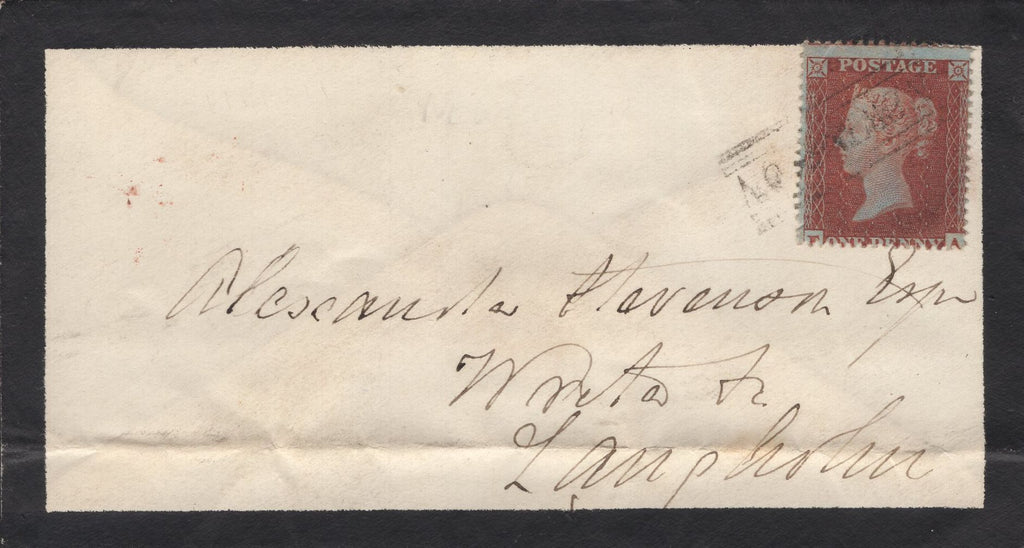 POSTAGE
ONE PENNY A
Alexander Stevenson Esqr
Writer &c.
Langholm